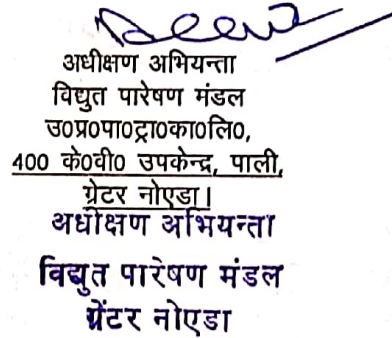 अधीक्षण अभियन्ता
विद्युत पारेषण मंडल
उ०प्र०पा०ट्रा०का०लि०,
400 के०वी० उपकेन्द्र, पाली,
ग्रेटर नोएडा।
अधीक्षण अभियन्ता
विद्युत पारेषण मंडल
ग्रेटर नोएडा